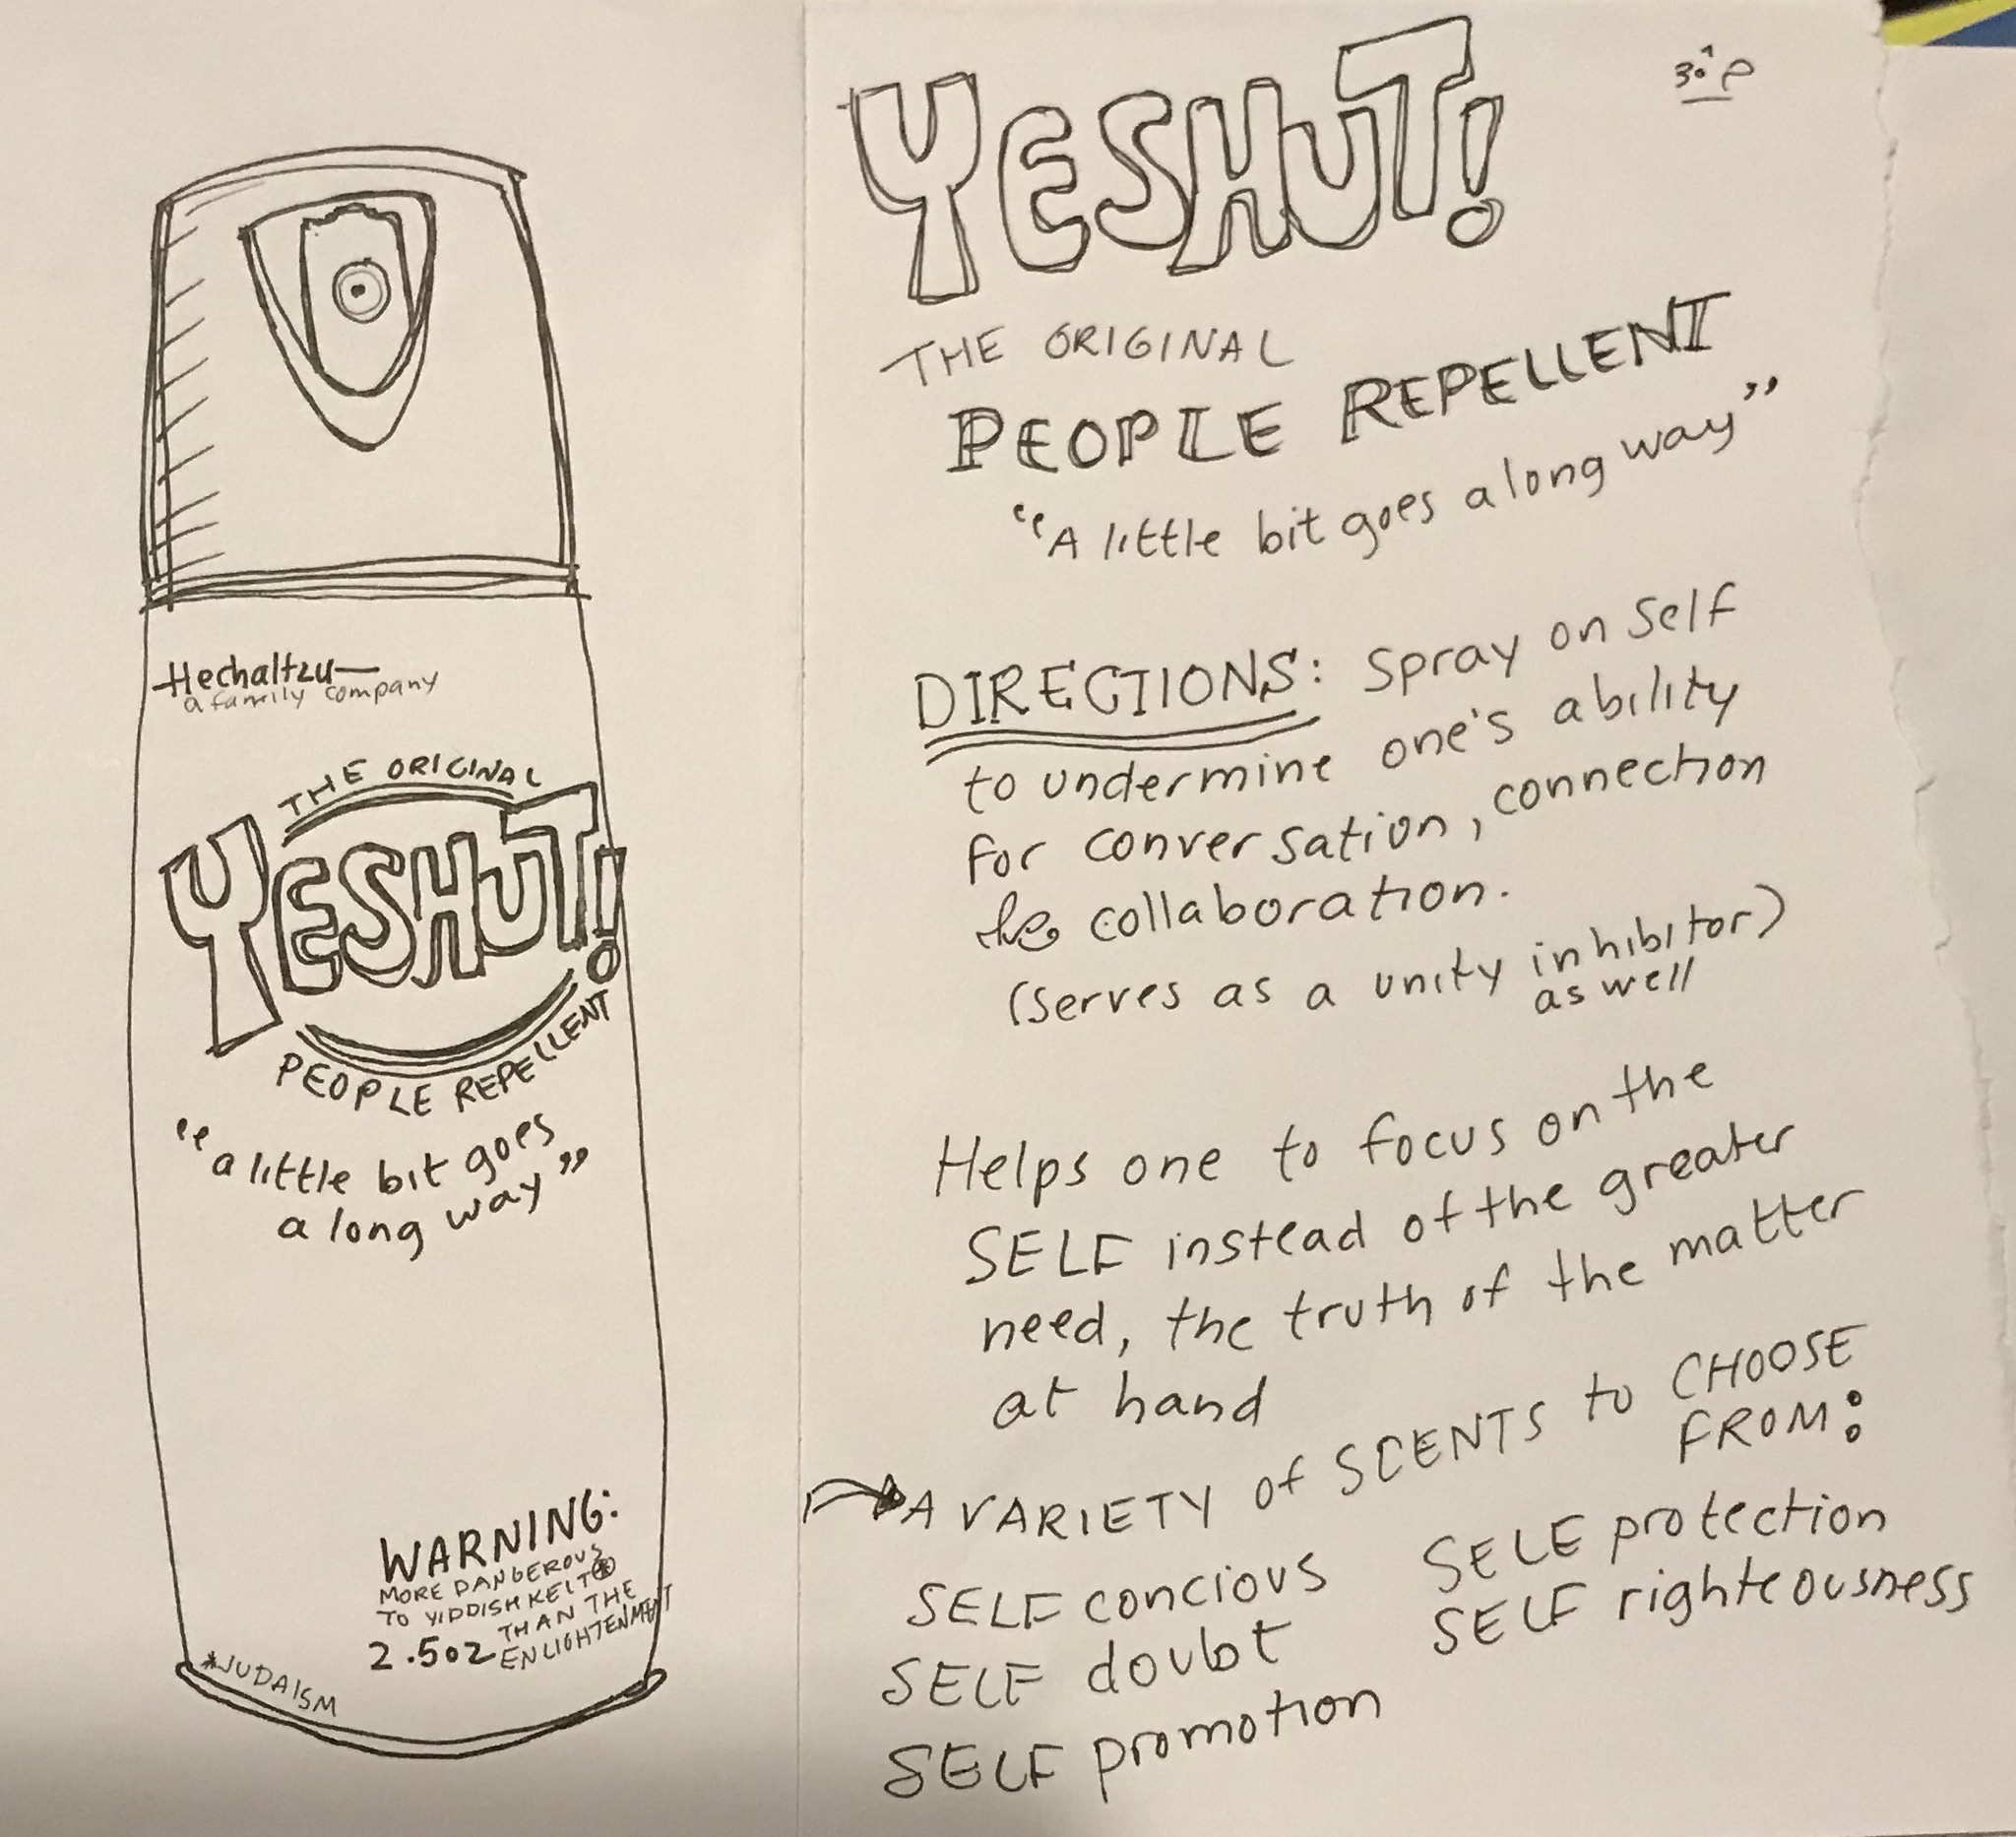 Hechaltzu
a family company
THE ORIGINAL
YESHUT!
PEOPLE REPELLENT
"a little bit goes
a long way"
WARNING:
MORE DANGEROUS
TO YIDDISHKEIT*
THAN THE
ENLIGHTENMENT
2.5oz
*JUDAISM
YESHUT!
THE ORIGINAL
PEOPLE REPELLENT
"A little bit goes a long way"
DIRECTIONS: Spray on self
to undermine one's ability
for conversation, connection
& collaboration.
(serves as a unity inhibitor)
as well
Helps one to focus on the
SELF instead of the greater
need, the truth of the matter
at hand
A VARIETY of SCENTS to CHOOSE
FROM:
SELF concious
SELF doubt
SELF promotion
SELF protection
SELF righteousness